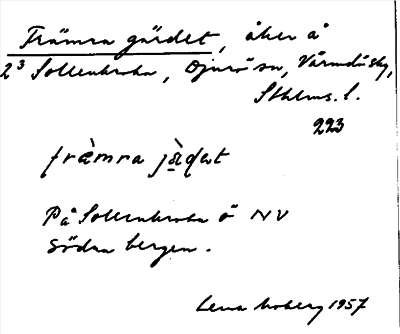 Främra gärdet, åker å
2³ Sollenkroka, Djurö sn, Värmdö skg,
Sthlms. l.
223
fràmra jà̤ḍat
På Sollenkroka ö NV
Södra bergen.
Lena Moberg 1957